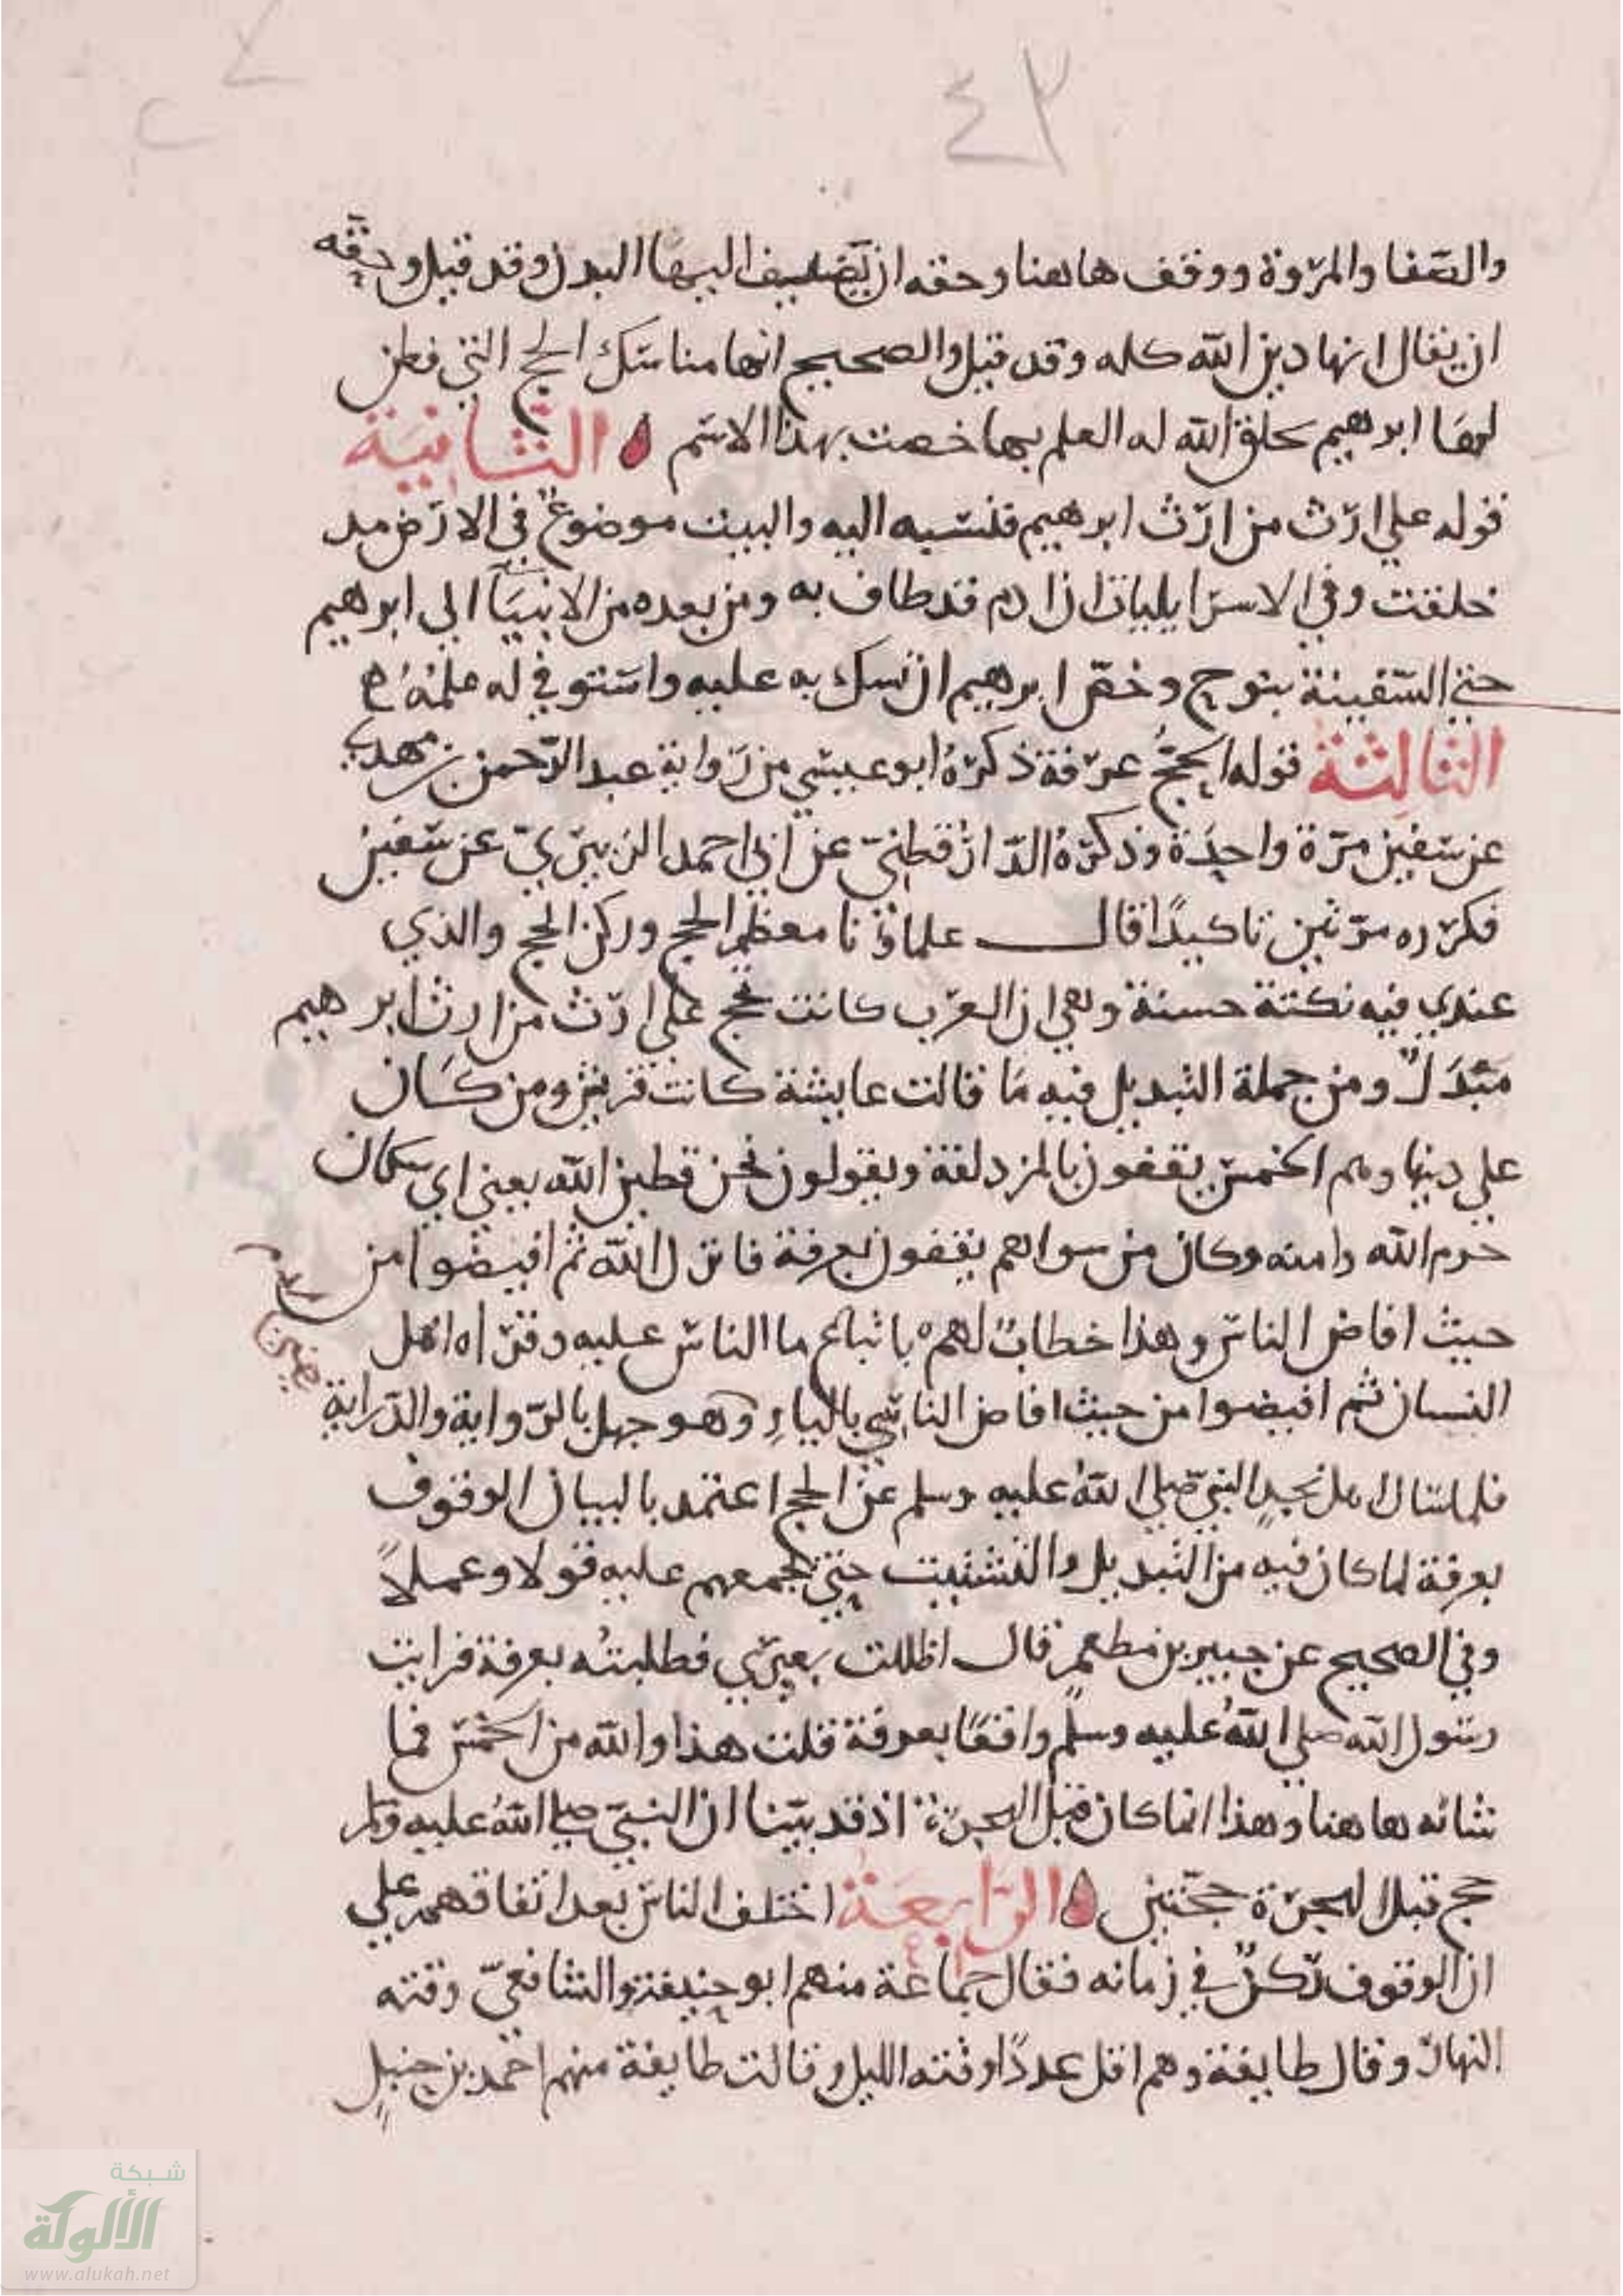 ٤٣
والصفا والمروة ووقف هاهنا وحقه ان يضيف اليها البدل وقد قيل وحقه
ان يقال انها دين الله كله وقد قيل والصحيح انها مناسك الحج التي فطن
لها ابرهيم بخلق الله له العلم بها خصت بهذا الاسم الثانية
قوله علي ارث من ارث ابرهيم فنسبه اليه والبيت موضوع في الارض مد
خلقت وفي الاسرايليات ان ادم قد طاف به ومن بعده من الانبيآ الى ابرهيم
حتي السفينة بنوح وخص ابرهيم ان نسك به عليه واستوفي له علمه
الثالثة قوله الحج عرفة ذكره ابو عيسي من رواية عبد الرحمن بن مهدي
عن سفين مرة واحدة وذكره الدارقطني عن ابي احمد الزبيري عن سفين
فكرره مرتين تاكيدًا قال علماؤنا معظم الحج وركن الحج والذي
عندي فيه نكتة حسنة وهي ان العرب كانت تحج علي ارث من ارث ابرهيم
مبدل ومن جملة التبديل فيه ما قالت عايشة كانت قريش ومن كان
علي دينها وهم الحمس يقفون بالمزدلفة ويقولون نحن قطين الله يعني اي سكان
حرم الله وامنه وكان من سواهم يقفون بعرفة فانزل الله ثم افيضوا من
حيث افاض الناس وهذا خطاب لهم باتباع ما الناس عليه وقراه اهل
النسيان ثم افيضوا من حيث افاض الناسي بالياءِ وهو جهل بالرواية والدراية
فلما سال اهل نجدٍ النبي صلي الله عليه وسلم عن الحج اعتمد بالبيان الوقوف
بعرفة لما كان فيه من التبديل والتشتيت حتي يجمعهم عليه قولا وعملاً
وفي الصحيح عن جبير بن مطعم قال اظللت بعيري فطلبته بعرفة فرايت
رسول الله صلي الله عليه وسلم واقفًا بعرفة فقلت هذا والله من الحمس فما
شانه هاهنا وهذا انما كان قبل الهجرة اذ قد بينا ان النبي صلي الله عليه وسلم
حج قبل الهجرة حجتين الرابعة اختلف الناس بعد اتفاقهم علي
ان الوقوف ركن في زمانه فقال جماعة منهم ابو حنيفة والشافعي وقته
النهار وقال طايفة وهم اقل عددًا وقته الليل وقالت طايفة منهم احمد بن حنبلٍ
شبكة
الألوكة
www.alukah.net